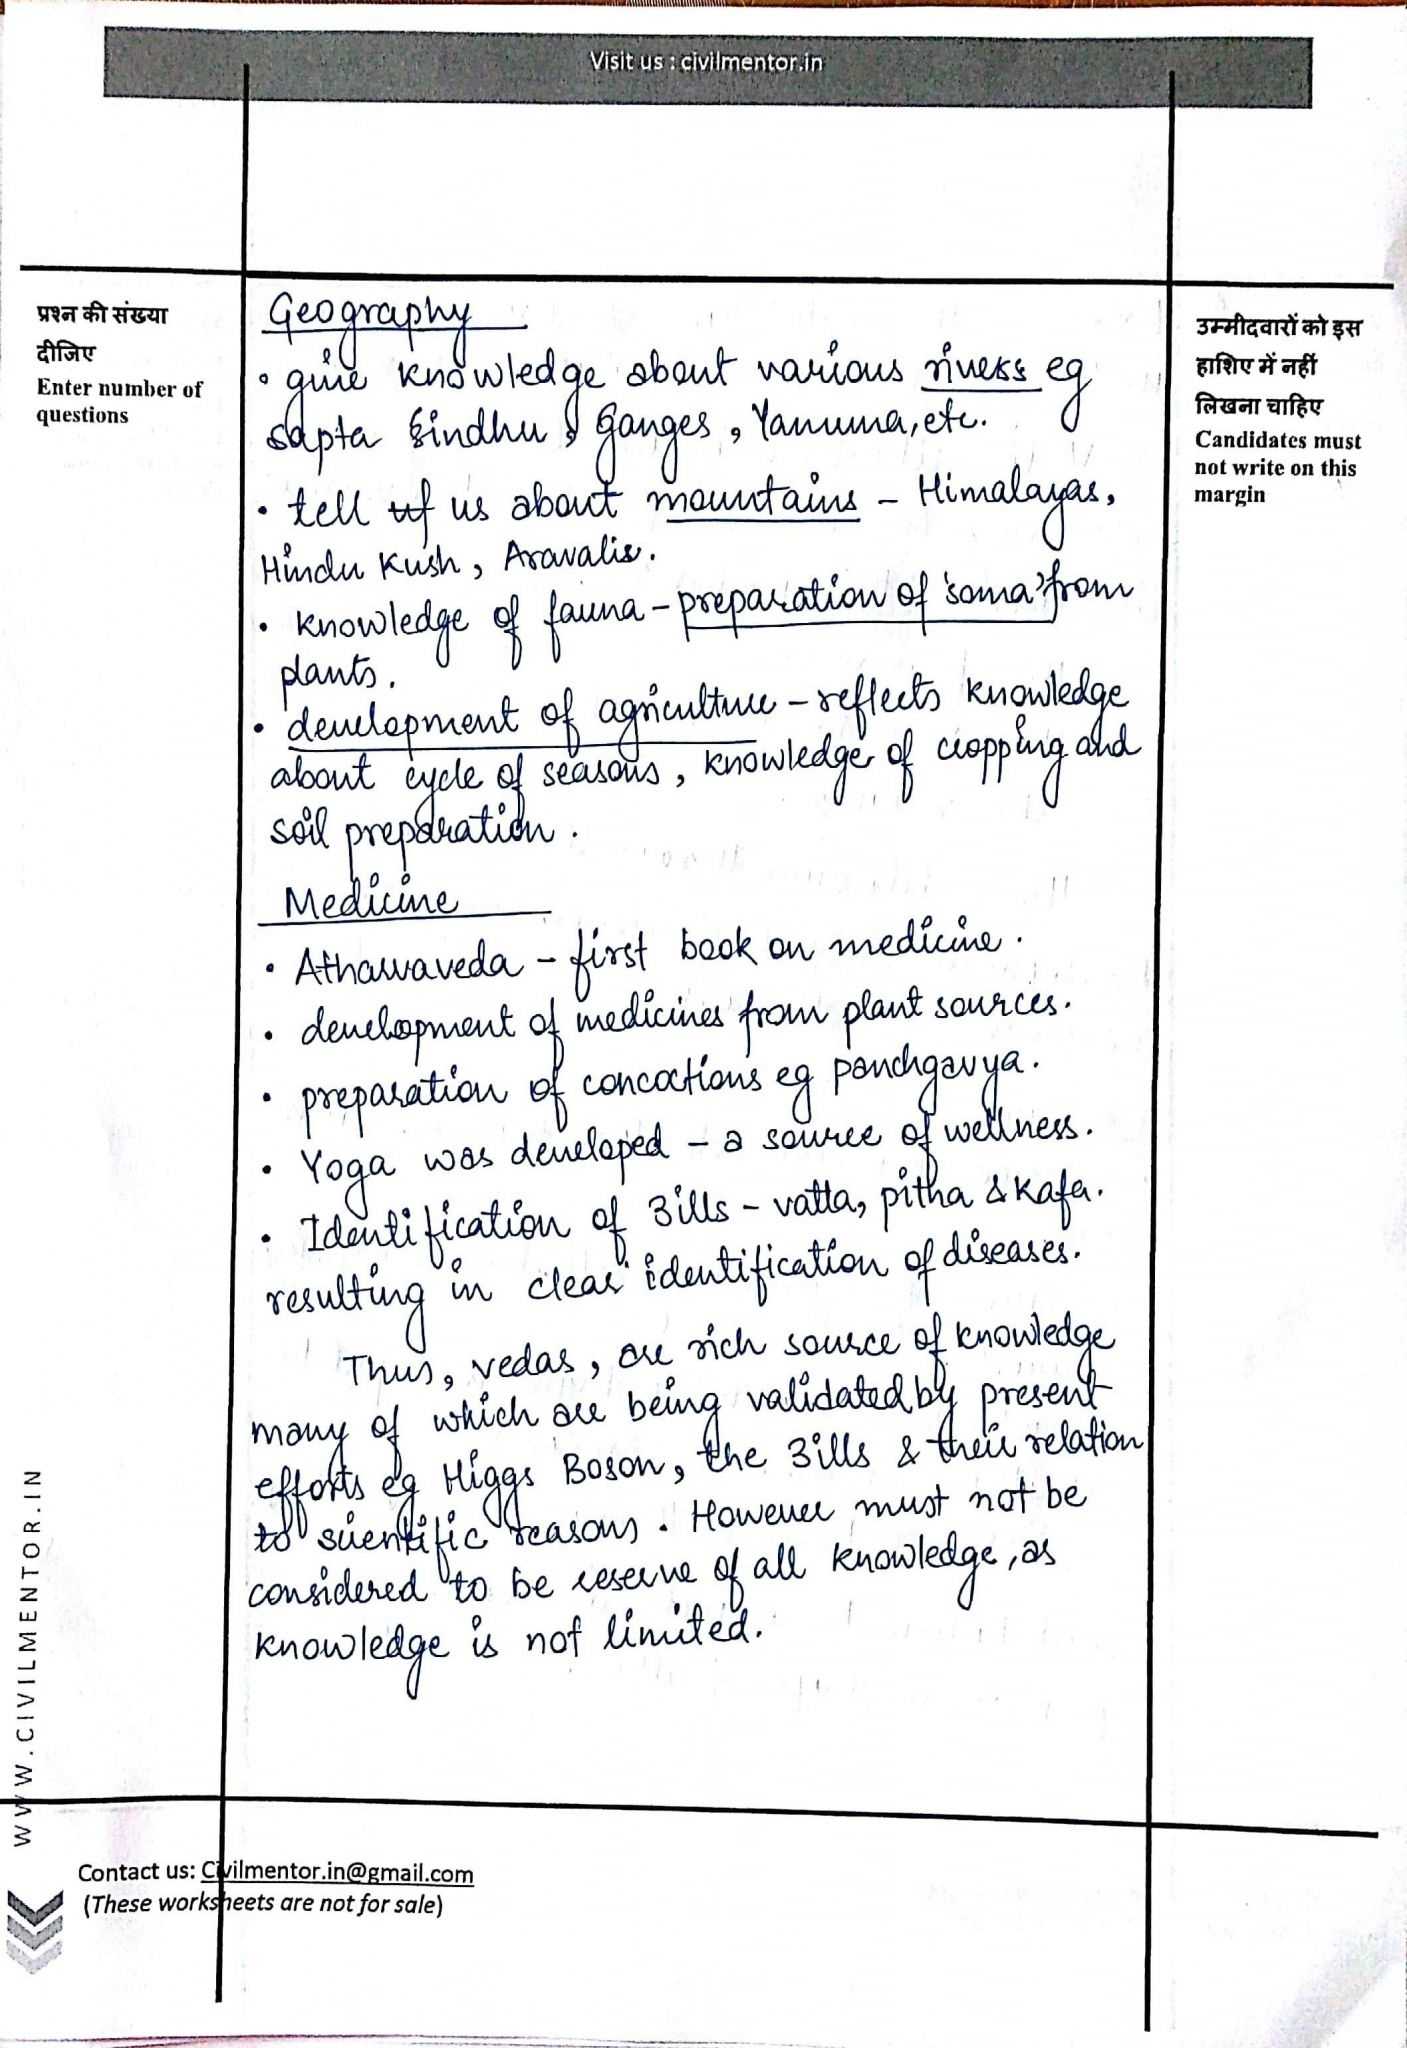 Visit us : civilmentor.in
प्रश्न की संख्या
दीजिए
Enter number of
questions
उम्मीदवारों को इस
हाशिए में नहीं
लिखना चाहिए
Candidates must
not write on this
margin
Geography
• give knowledge about various rivers eg
sapta Sindhu, Ganges, Yamuna, etc.
• tell us about mountains - Himalayas,
Hindu Kush, Aravalis.
• knowledge of fauna - preparation of 'soma' from
plants.
• development of agriculture - reflects knowledge
about cycle of seasons, knowledge of cropping and
soil preparation.
Medicine
• Atharvaveda - first book on medicine.
• development of medicines from plant sources.
• preparation of concoctions eg panchgavya.
• Yoga was developed - a source of wellness.
• Identification of 3ills - vatta, pitha & kafa.
resulting in clear identification of diseases.
Thus, vedas, are rich source of knowledge
many of which are being validated by present
efforts eg Higgs Boson, the 3ills & their relation
to scientific reasons. However must not be
considered to be reserve of all knowledge, as
knowledge is not limited.
WWW.CIVILMENTOR.IN
Contact us: Civilmentor.in@gmail.com
(These worksheets are not for sale)